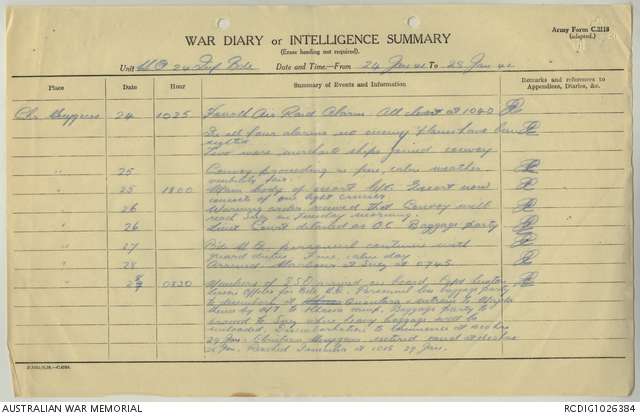 Army Form C.2118
(adapted.)
WAR DIARY or INTELLIGENCE SUMMARY
(Erase heading not required).
Unit HQ 24 Inf Bde Date and Time:—From 24 Jan 41 To 28 Jan 41
Place Date Hour Summary of Events and Information Remarks and references to
Appendices, Diaries, &c.
24 1025 Fourth Air Raid Alarm All clear at 1040
In all four alarms no enemy planes have been
sighted
Two more merchant ships joined convoy
" 25 Convoy proceeding in fine, calm weather
visibility fair.
" 25 1800 Main body of escort left. Escort now
consists of one light cruiser
" 26 Warning order received that Convoy will
reach Suez on Tuesday morning.
" 26 Lieut Court detailed as O.C. Baggage party
" 27 Bde H.Q. personnel continue with
guard duties. Fine, calm day
" 28 Arrived Harbour at Suez at 0745
" 28 0830 Members of on board,
Liaison Officer for Bde H.Q. Personnel less baggage party
to disembark at Quantara & entrain to
thence by M/T to camp. Baggage party to
proceed to Suez where heavy baggage will be
unloaded. Disembarkation to commence at
29 Jan. entered canal at
28 Jan. Reached Ismailia at 1015 29 Jan.
AUSTRALIAN WAR MEMORIAL
RCDIG1026384